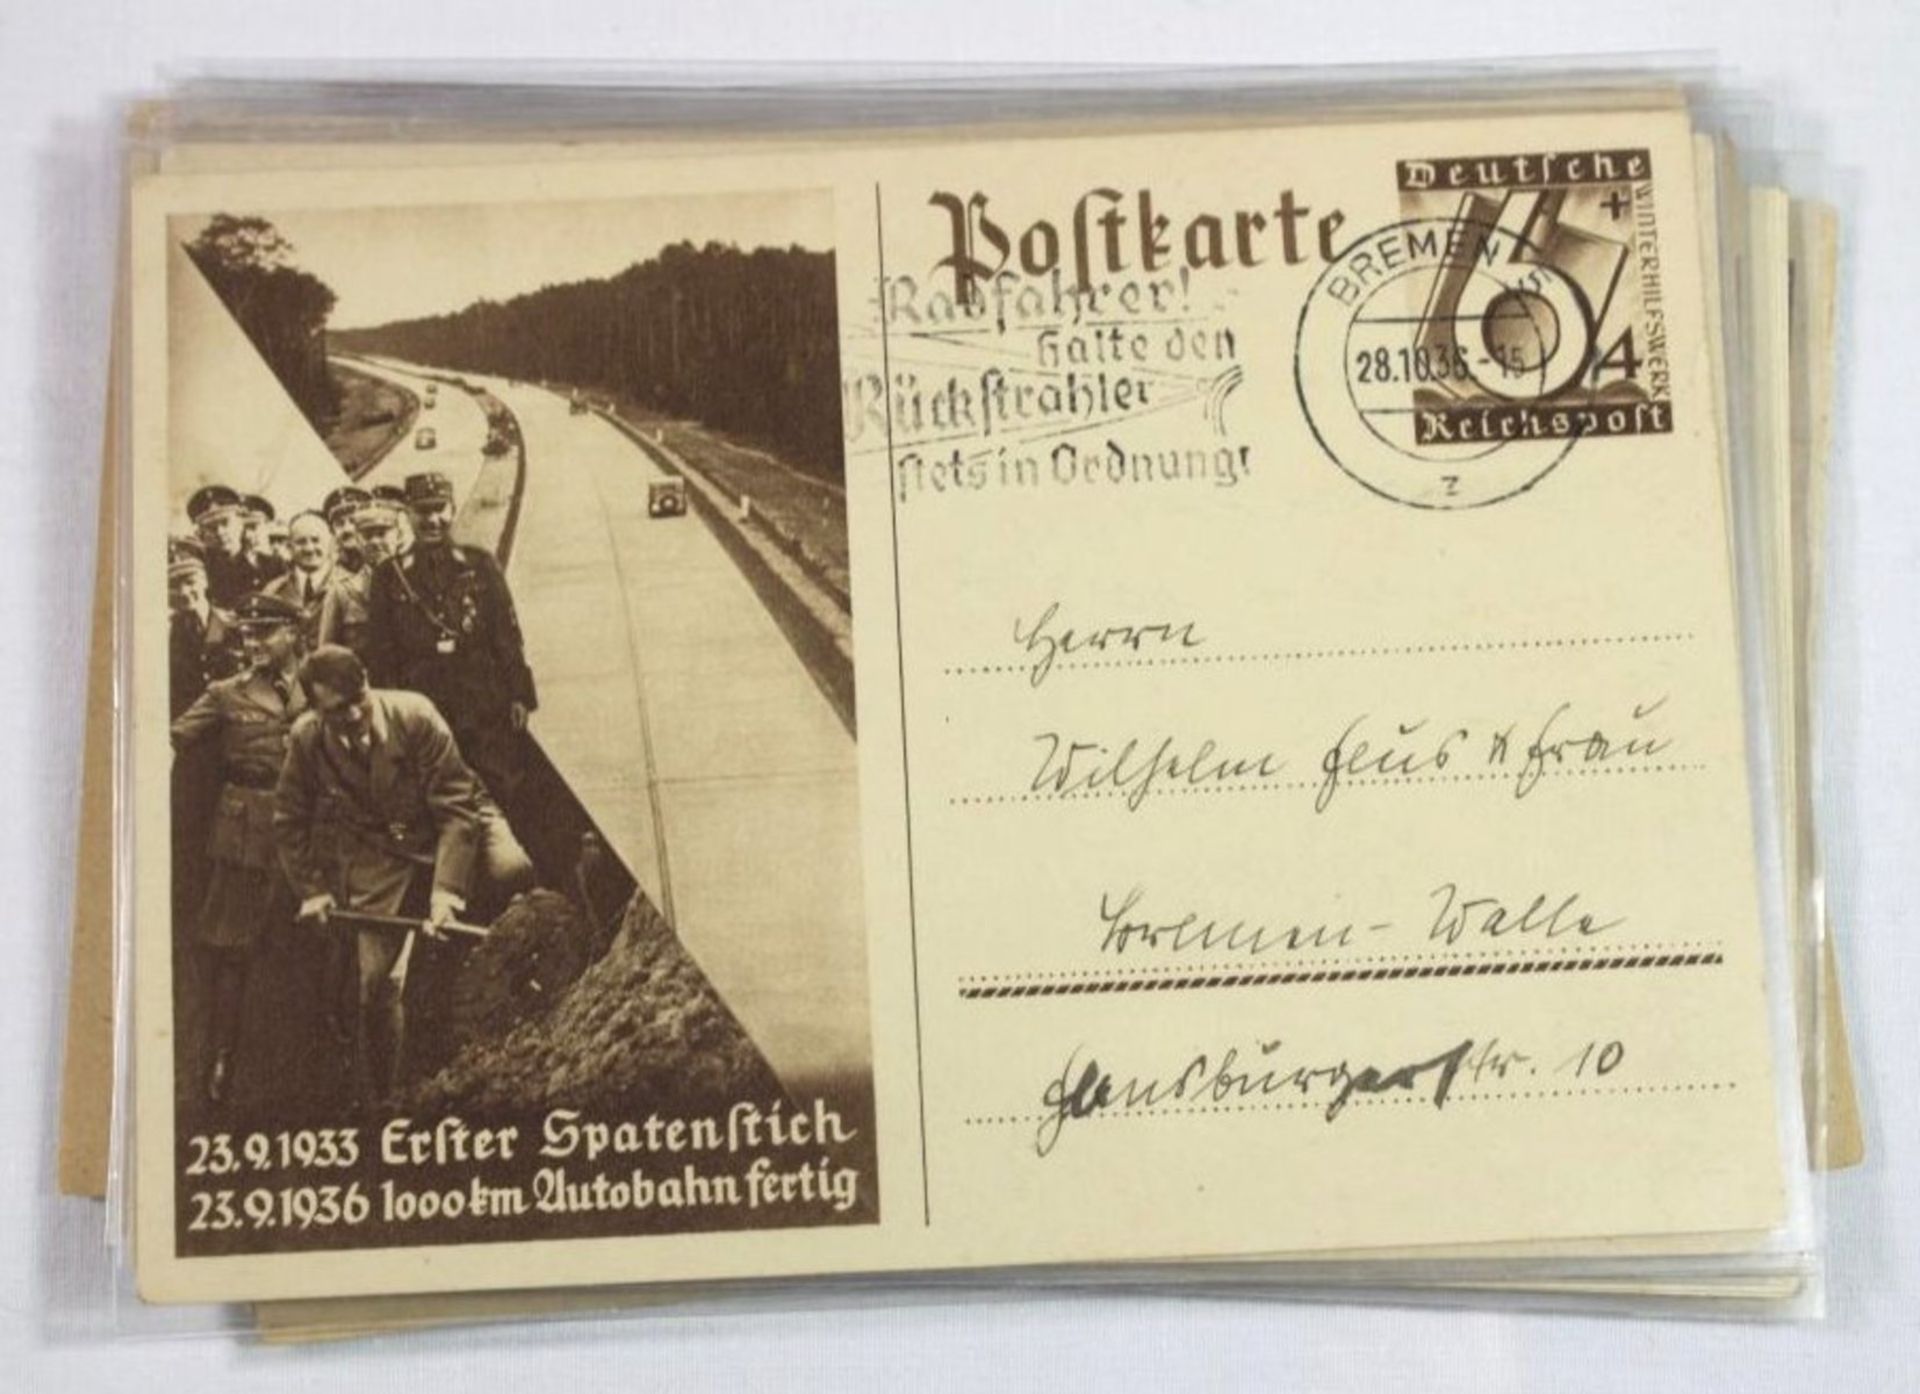 Postkarte
Deutsche
6 + 4
WINTERHILFSWERK
Reichspost
BREMEN 5
28.10.36.-15
z
Radfahrer!
halte den
Rückstrahler
stets in Ordnung!
Herrn
Wilhelm & Frau
Bremen-Walle
str. 10
23.9.1933 Erster Spatenstich
23.9.1936 1000 km Autobahn fertig